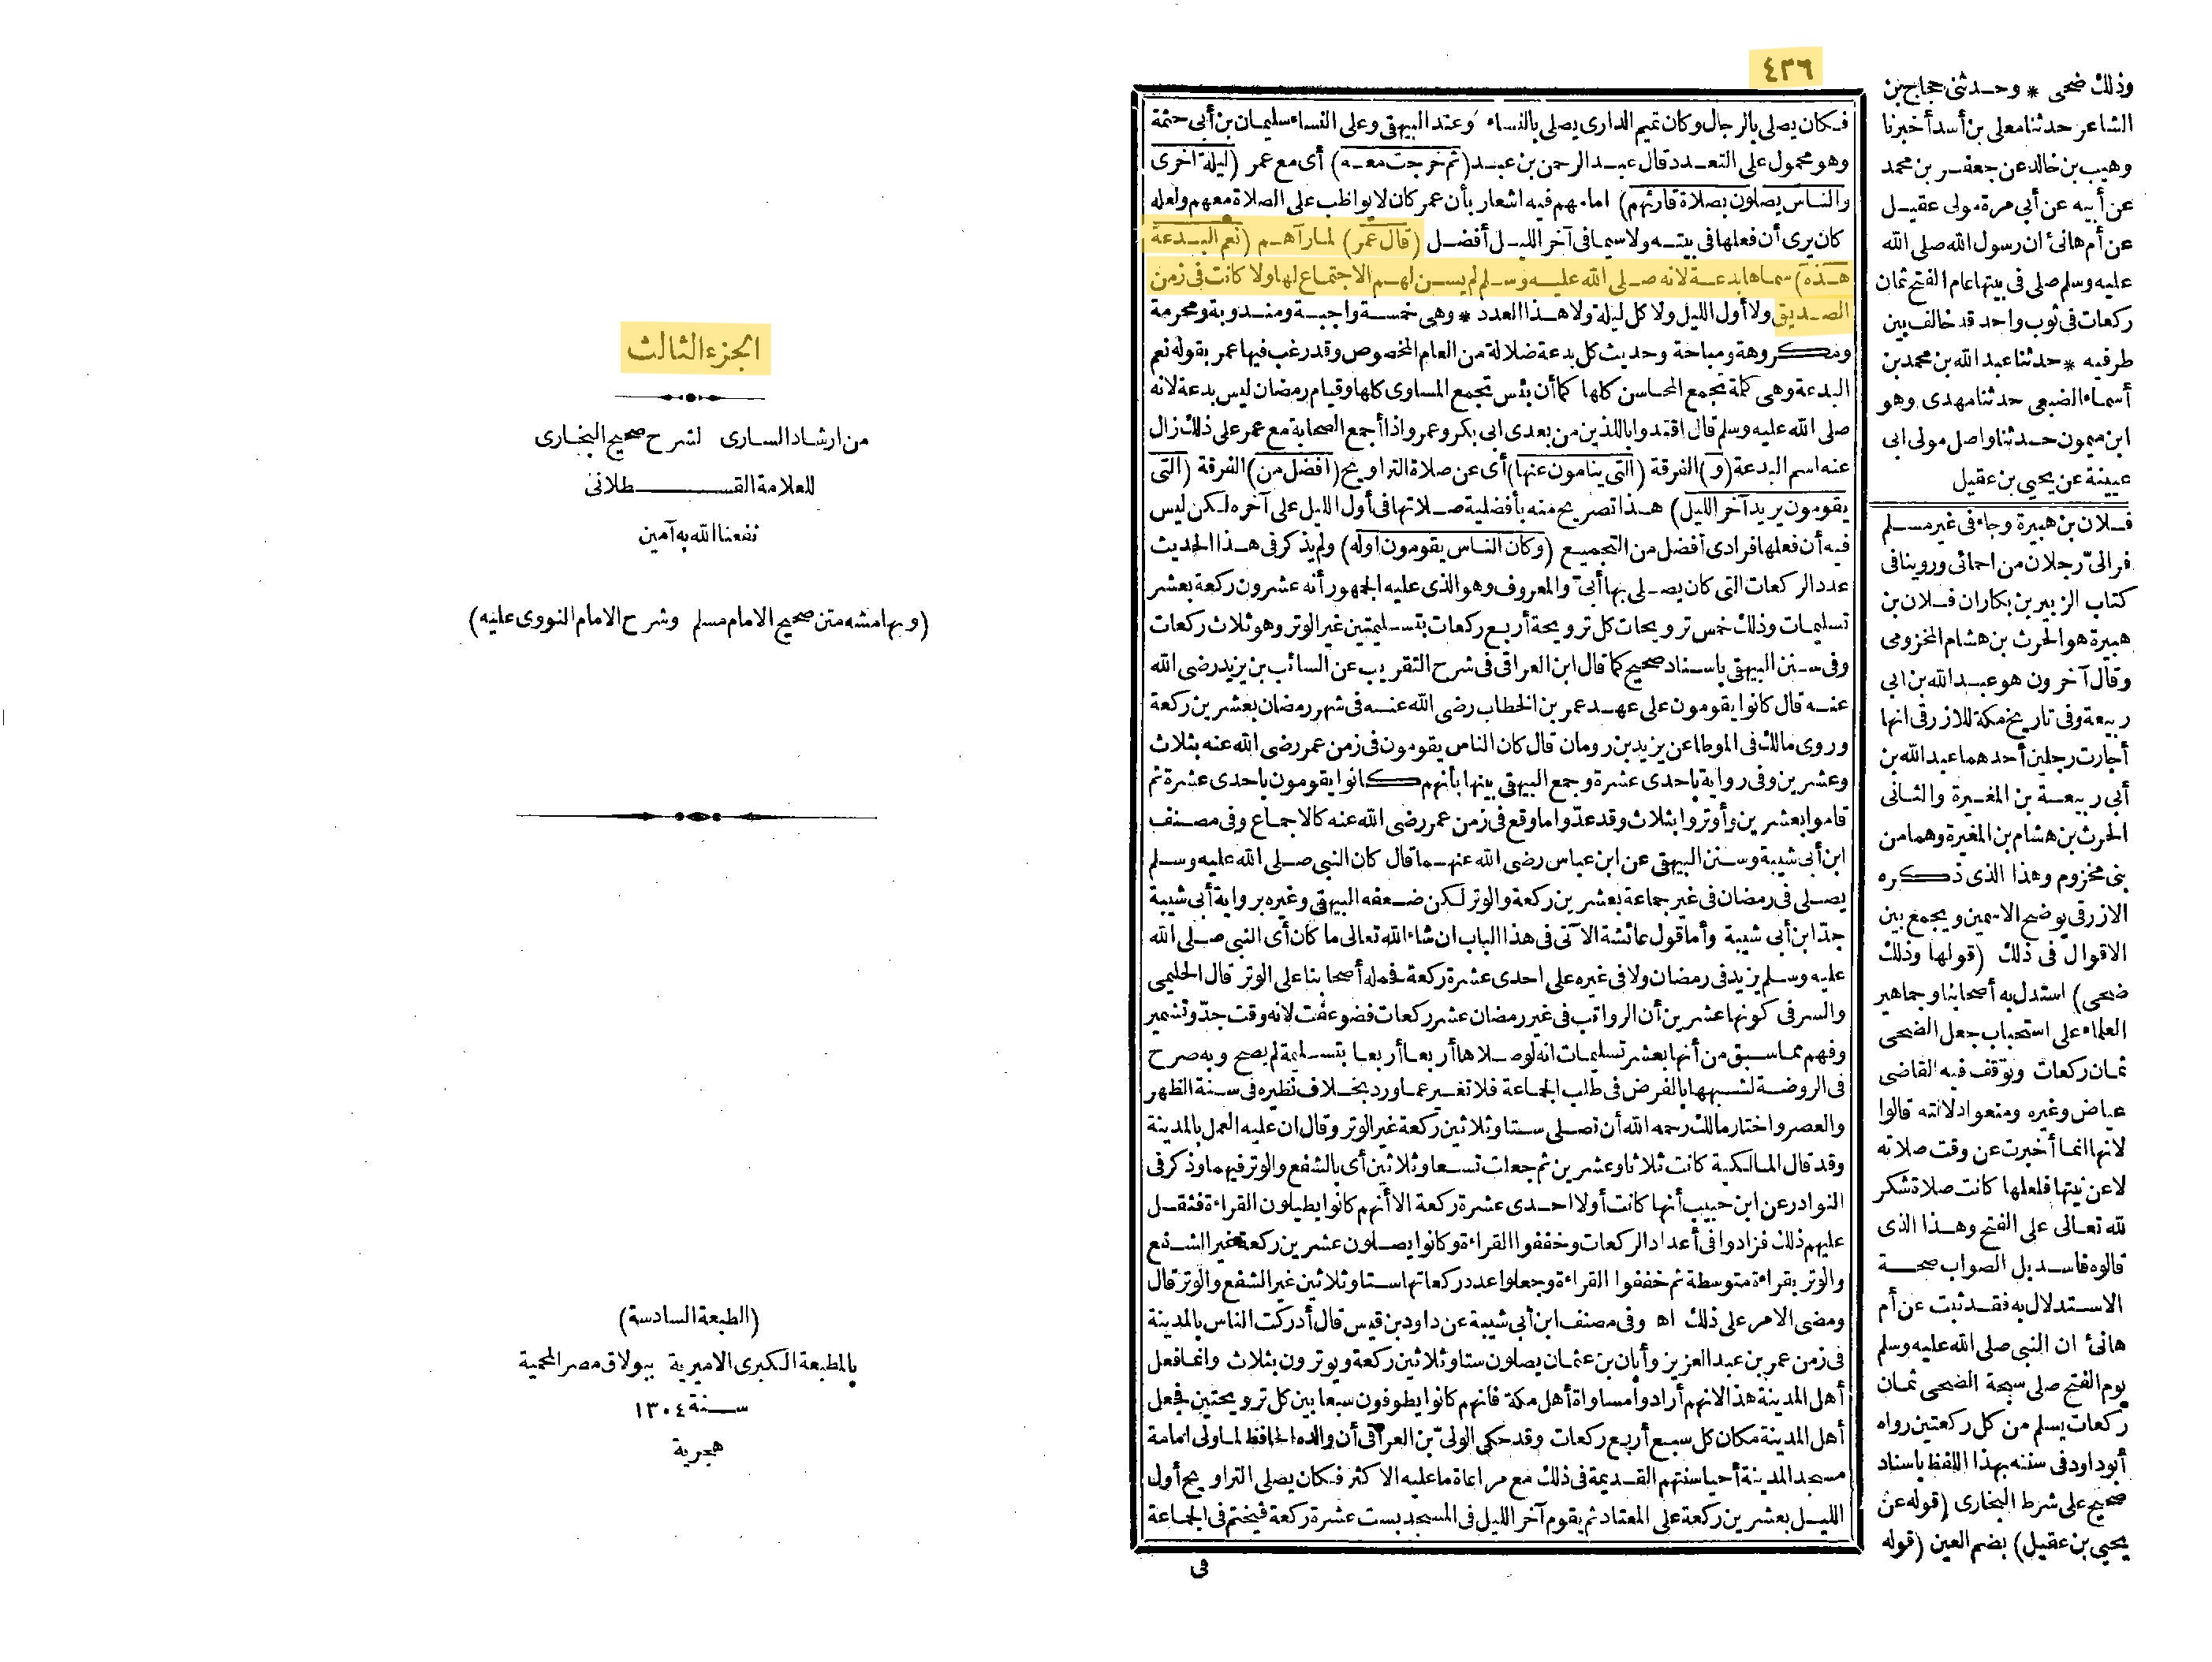 ٤٢٦
فكان يصلي بالرجال وكان تميم الداري يصلي بالنساء وعند البيهقي وعلى النساء سليمان بن أبي حثمة
وهو محمول على التعدد قال عبد الرحمن بن عبد (ثم خرجت معه) أي مع عمر (ليلة اخرى
والناس يصلون بصلاة قارئهم) امامهم فيه اشعار بأن عمر كان لا يواظب على الصلاة معهم ولعله
كان يرى أن فعلها في بيته ولا سيما في آخر الليل أفضل (قال عمر) لما رآهم (نعم البدعة
هذه) سماها بدعة لانه صلى الله عليه وسلم لم يسن لهم الاجتماع لها ولا كانت في زمن
الصديق ولا أول الليل ولا كل ليلة ولا هذا العدد * وهي خمسة واجبة ومندوبة ومحرمة
ومكروهة ومباحة وحديث كل بدعة ضلالة من العام المخصوص وقد رغب فيها عمر بقوله نعم
البدعة وهي كلمة تجمع المحاسن كلها كما أن بئس تجمع المساوى كلها وقيام رمضان ليس بدعة لانه
صلى الله عليه وسلم قال اقتدوا باللذين من بعدى ابى بكر وعمر واذا أجمع الصحابة مع عمر على ذلك زال
عنه اسم البدعة (و) الفرقة (التى ينامون عنها) أى عن صلاة التراويح (أفضل من) الفرقة (التى
يقومون يريد آخر الليل) هذا تصريح منه بأفضلية صلاتها فى أول الليل على آخره لكن ليس
فيه أن فعلها فرادى أفضل من التجميع (وكان الناس يقومون أوله) ولم يذكر فى هذا الحديث
عدد الركعات التى كان يصلى بها أبىّ والمعروف وهو الذى عليه الجمهور أنه عشرون ركعة بعشر
تسليمات وذلك خمس ترويحات كل ترويحة أربع ركعات بتسليمتين غير الوتر وهو ثلاث ركعات
وفى سنن البيهقى باسناد صحيح كما قال ابن العراقى فى شرح التقريب عن السائب بن يزيد رضى الله
عنه قال كانوا يقومون على عهد عمر بن الخطاب رضى الله عنه فى شهر رمضان بعشرين ركعة
وروى مالك فى الموطا عن يزيد بن رومان قال كان الناس يقومون فى زمن عمر رضى الله عنه بثلاث
وعشرين وفى رواية باحدى عشرة وجمع البيهقى بينها بأنهم كانوا يقومون باحدى عشرة ثم
قاموا بعشرين وأوتروا بثلاث وقد عدّوا ما وقع فى زمن عمر رضى الله عنه كالاجماع وفى مصنف
ابن أبى شيبة وسنن البيهقى عن ابن عباس رضى الله عنهما قال كان النبى صلى الله عليه وسلم
يصلى فى رمضان فى غير جماعة بعشرين ركعة والوتر لكن ضعفه البيهقى وغيره برواية أبى شيبة
جدّ ابن أبى شيبة وأما قول عائشة الآتى فى هذا الباب ان شاء الله تعالى ما كان أى النبى صلى الله
عليه وسلم يزيد فى رمضان ولا فى غيره على احدى عشرة ركعة فحمله أصحابنا على الوتر قال الحليمى
والسر فى كونها عشرين أن الرواتب فى غير رمضان عشر ركعات فضوعفت لانه وقت جدّ وتشمير
وفهم مما سبق من أنها بعشر تسليمات انه لو صلاها أربعا أربعا بتسليمة لم يصح وبه صرح
فى الروضة لشبهها بالفرض فى طلب الجماعة فلا تغير عما ورد بخلاف نظيره فى سنة الظهر
والعصر واختار مالك رحمه الله أن تصلى ستا وثلاثين ركعة غير الوتر وقال ان عليه العمل بالمدينة
وقد قال المالكية كانت ثلاثا وعشرين ثم جعلت تسعا وثلاثين أى بالشفع والوتر فيهما وذكر فى
النوادر عن ابن حبيب أنها كانت أولا احدى عشرة ركعة الا أنهم كانوا يطيلون القراءة فثقل
عليهم ذلك فزادوا فى أعداد الركعات وخففوا القراءة وكانوا يصلون عشرين ركعة غير الشفع
والوتر بقراءة متوسطة ثم خففوا القراءة وجعلوا عدد ركعاتها ستا وثلاثين غير الشفع والوتر قال
ومضى الامر على ذلك اه وفى مصنف ابن أبى شيبة عن داود بن قيس قال أدركت الناس بالمدينة
فى زمن عمر بن عبد العزيز وأبان بن عثمان يصلون ستا وثلاثين ركعة ويوترون بثلاث وانما فعل
أهل المدينة هذا لانهم أرادوا مساواة أهل مكة فانهم كانوا يطوفون سبعا بين كل ترويحتين فجعل
أهل المدينة مكان كل سبع أربع ركعات وقد حكى الولىّ بن العراقى أن والده الحافظ لما ولى امامة
مسجد المدينة أحيا سنتهم القديمة فى ذلك مع مراعاة ما عليه الاكثر فكان يصلى التراويح أول
الليل بعشرين ركعة على المعتاد ثم يقوم آخر الليل فى المسجد بست عشرة ركعة فيختم فى الجماعة
فى
وذلك ضحى * وحدثنى حجاج بن
الشاعر حدثنا معلى بن أسد أخبرنا
وهيب بن خالد عن جعفر بن محمد
عن أبيه عن أبى مرة مولى عقيل
عن أم هانئ ان رسول الله صلى الله
عليه وسلم صلى فى بيتها عام الفتح ثمان
ركعات فى ثوب واحد قد خالف بين
طرفيه * حدثنا عبد الله بن محمد بن
أسماء الضبعى حدثنا مهدى وهو
ابن ميمون حدثنا واصل مولى ابى
عيينة عن يحيى بن عقيل
فلان بن هبيرة وجاء فى غير مسلم
فر الىّ رجلان من احمائى وروينا فى
كتاب الزبير بن بكار ان فلان بن
هبيرة هو الحرث بن هشام المخزومى
وقال آخرون هو عبد الله بن ابى
ربيعة وفى تاريخ مكة للازرقى انها
أجارت رجلين أحدهما عبد الله بن
أبى ربيعة بن المغيرة والثانى
الحرث بن هشام بن المغيرة وهما من
بنى مخزوم وهذا الذى ذكره
الازرقى يوضح الاسمين ويجمع بين
الاقوال فى ذلك (قولها وذلك
ضحى) استدل به أصحابنا وجماهير
العلماء على استحباب جعل الضحى
ثمان ركعات وتوقف فيه القاضى
عياض وغيره ومنعوا دلالته قالوا
لانها انما أخبرت عن وقت صلاته
لا عن نيتها فلعلها كانت صلاة شكر
لله تعالى على الفتح وهذا الذى
قالوه فاسد بل الصواب صحة
الاستدلال به فقد ثبت عن أم
هانئ ان النبى صلى الله عليه وسلم
يوم الفتح صلى سبحة الضحى ثمان
ركعات يسلم من كل ركعتين رواه
أبو داود فى سننه بهذا اللفظ باسناد
صحيح على شرط البخارى (قوله عن
يحيى بن عقيل) بضم العين (قوله
الجزء الثالث
من ارشاد السارى لشرح صحيح البخارى
للعلامة القسطلانى
نفعنا الله به آمين
(وبهامشه متن صحيح الامام مسلم وشرح الامام النووى عليه)
(الطبعة السادسة)
بالمطبعة الكبرى الاميرية ببولاق مصر المحمية
سنة ١٣٠٤
هجرية